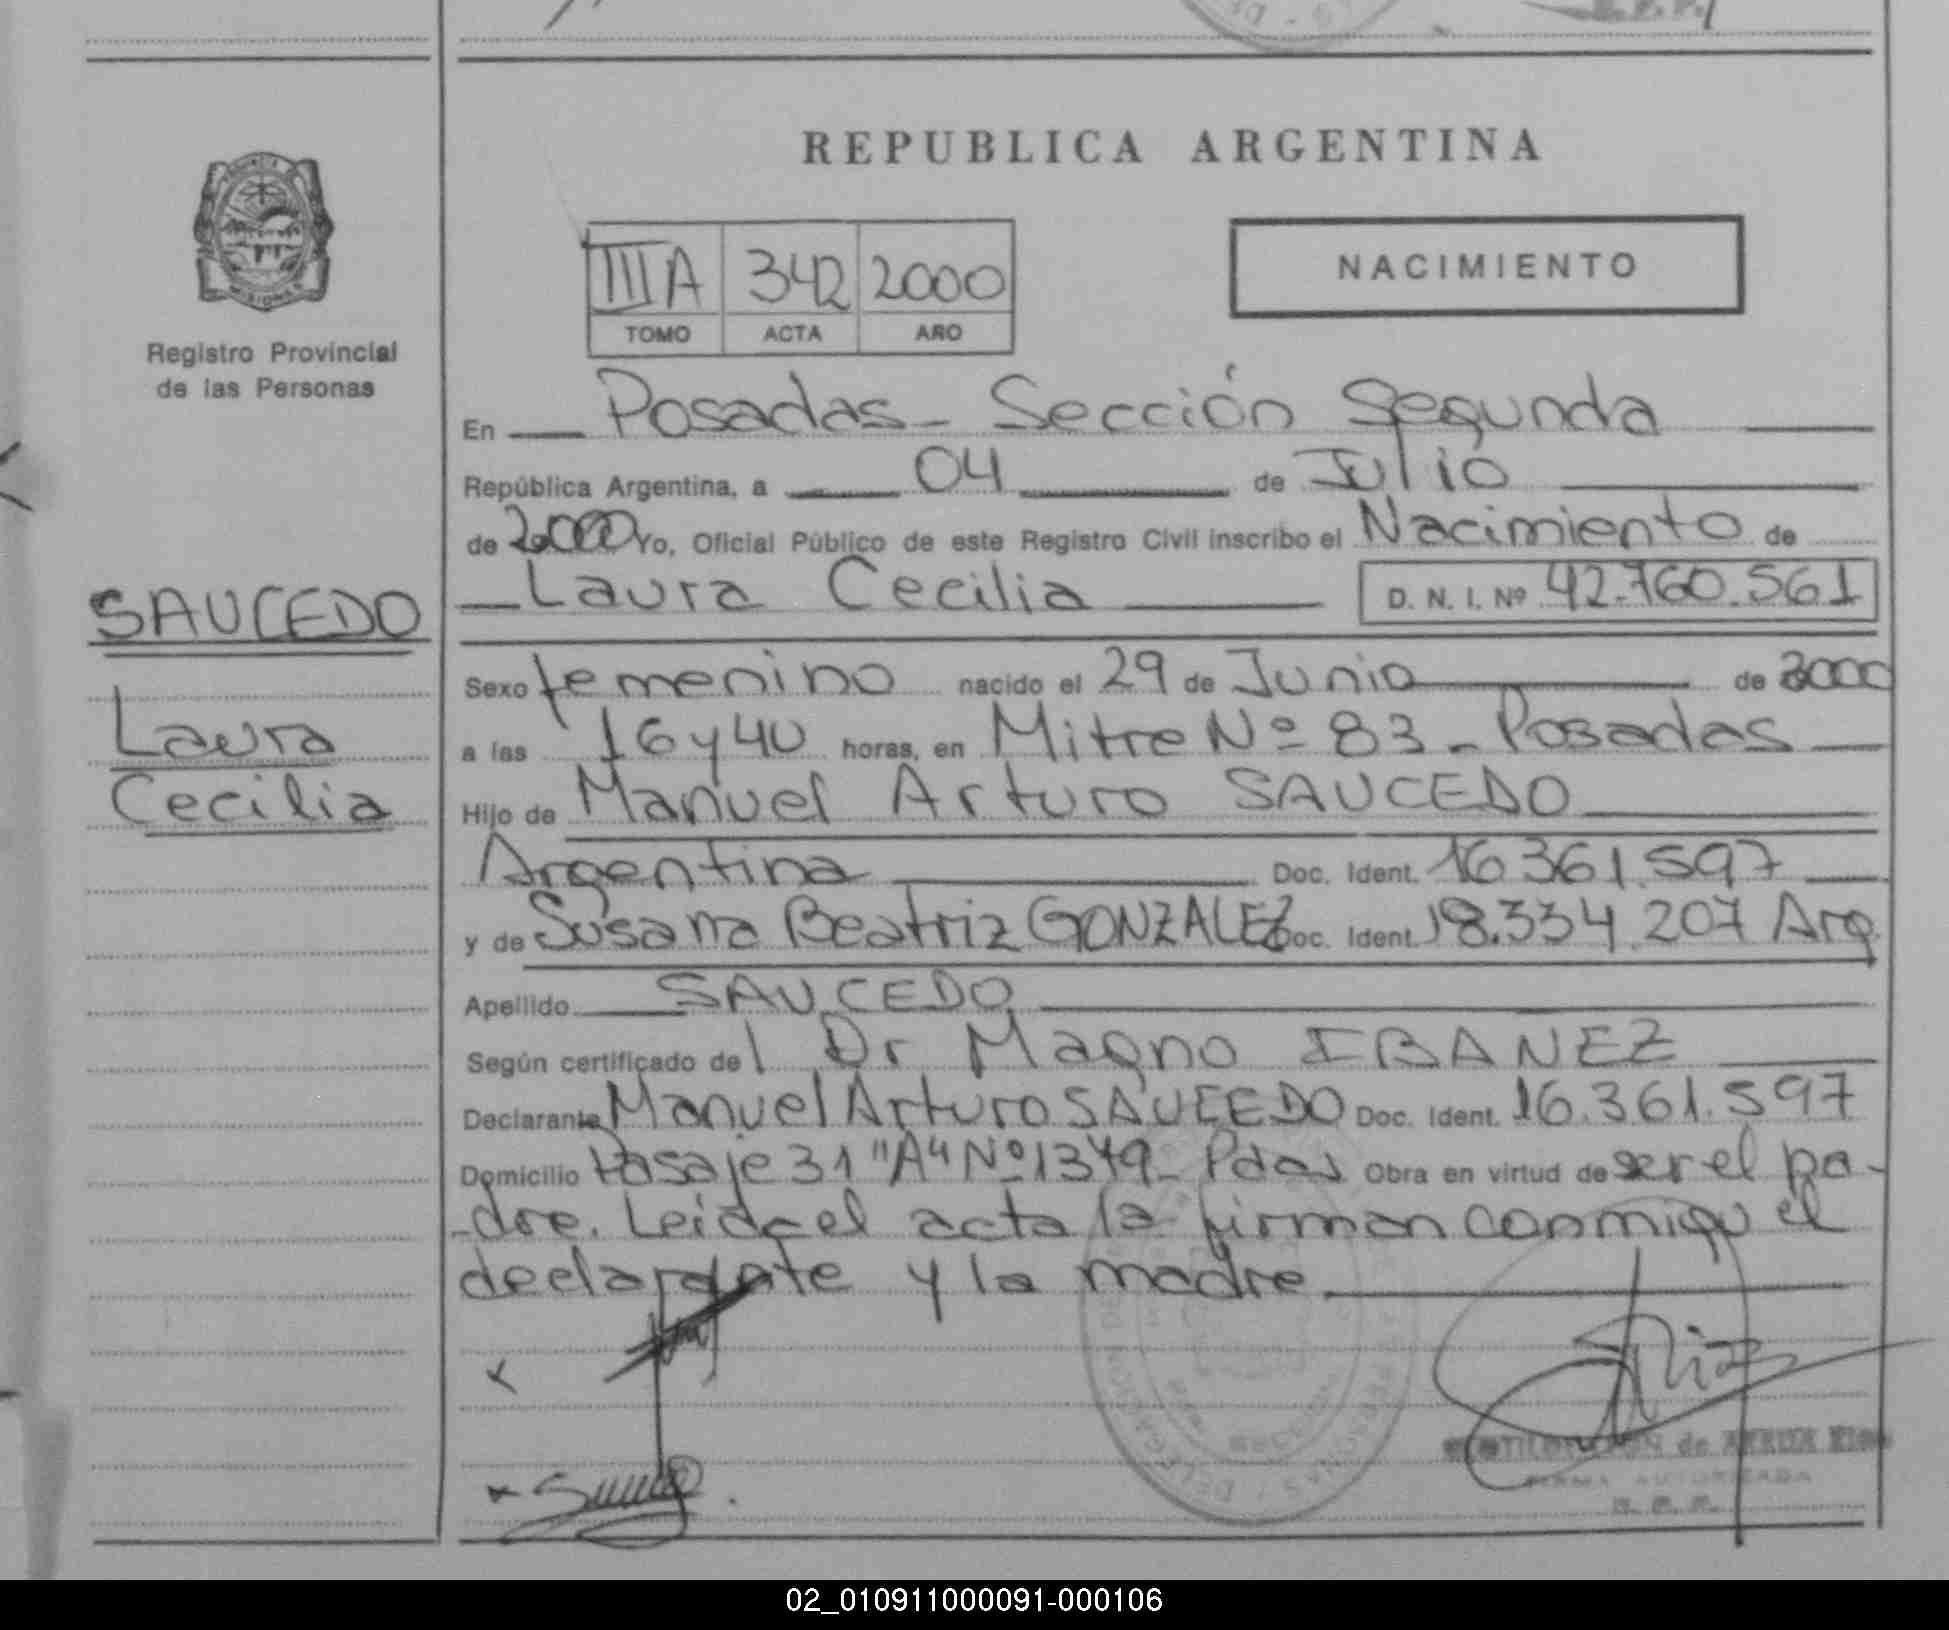 REPUBLICA ARGENTINA
MISIONES
Registro Provincial
de las Personas
SAUCEDO
Laura
Cecilia
IIIA 342 2000
TOMO ACTA AÑO
NACIMIENTO
En Posadas - Sección Segunda
República Argentina, a 04 de Julio
de 2000 Yo, Oficial Público de este Registro Civil inscribo el Nacimiento de
Laura Cecilia D. N. I. Nº 42.760.561
Sexo femenino nacido el 29 de Junio de 2000
a las 16 y 40 horas, en Mitre Nº 83 - Posadas
Hijo de Manuel Arturo SAUCEDO
Argentina Doc. Ident. 16.361.597
y de Susana Beatriz GONZALEZ Doc. Ident. 18.334.207 Arg.
Apellido SAUCEDO
Según certificado del Dr Magno IBANEZ
Declarante Manuel Arturo SAUCEDO Doc. Ident. 16.361.597
Domicilio Pasaje 31 "A" Nº 1349 - Pdas Obra en virtud de ser el pa-
-dre. Leida el acta la firman conmigo el
declarante y la madre
FIRMA AUTORIZADA
02_010911000091-000106